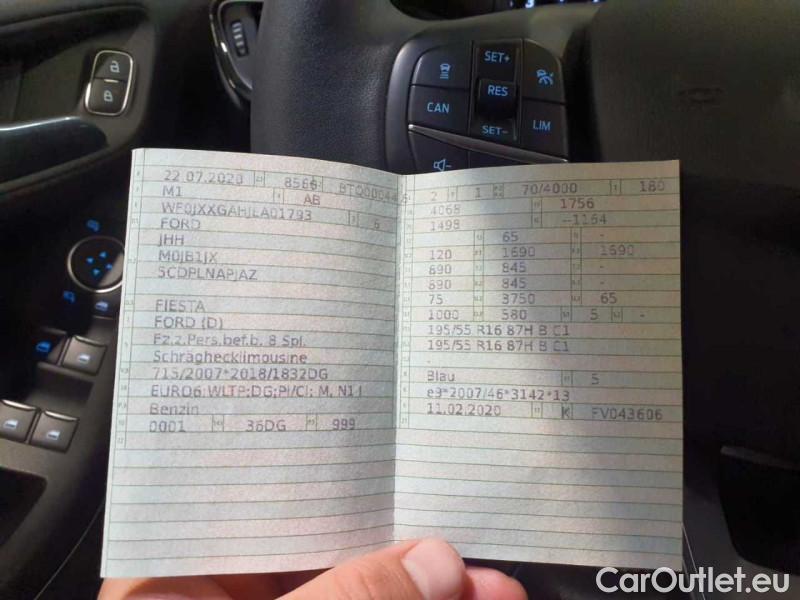 SET+
RES
CAN
SET-
LIM
22.07.2020 8566
M1 AB
WF0JXXGAHJLA01793 6
FORD
JHH
M0JB1JX
5CDPLNAPJAZ
FIESTA
FORD (D)
Fz.z.Pers.bef.b. 8 Spl.
Schräghecklimousine
715/2007*2018/1832DG
EURO6;WLTP;DG;PI/CI; M, N1 I
Benzin
0001 36DG 999
2 1 70/4000 180
4068 1756
1498 --1164
65 -
120 1690 1690
890 845 -
890 845 -
75 3750 65
1000 580 5 -
195/55 R16 87H B C1
195/55 R16 87H B C1
-
Blau 5
e9*2007/46*3142*13
11.02.2020 K FV043606
CarOutlet.eu